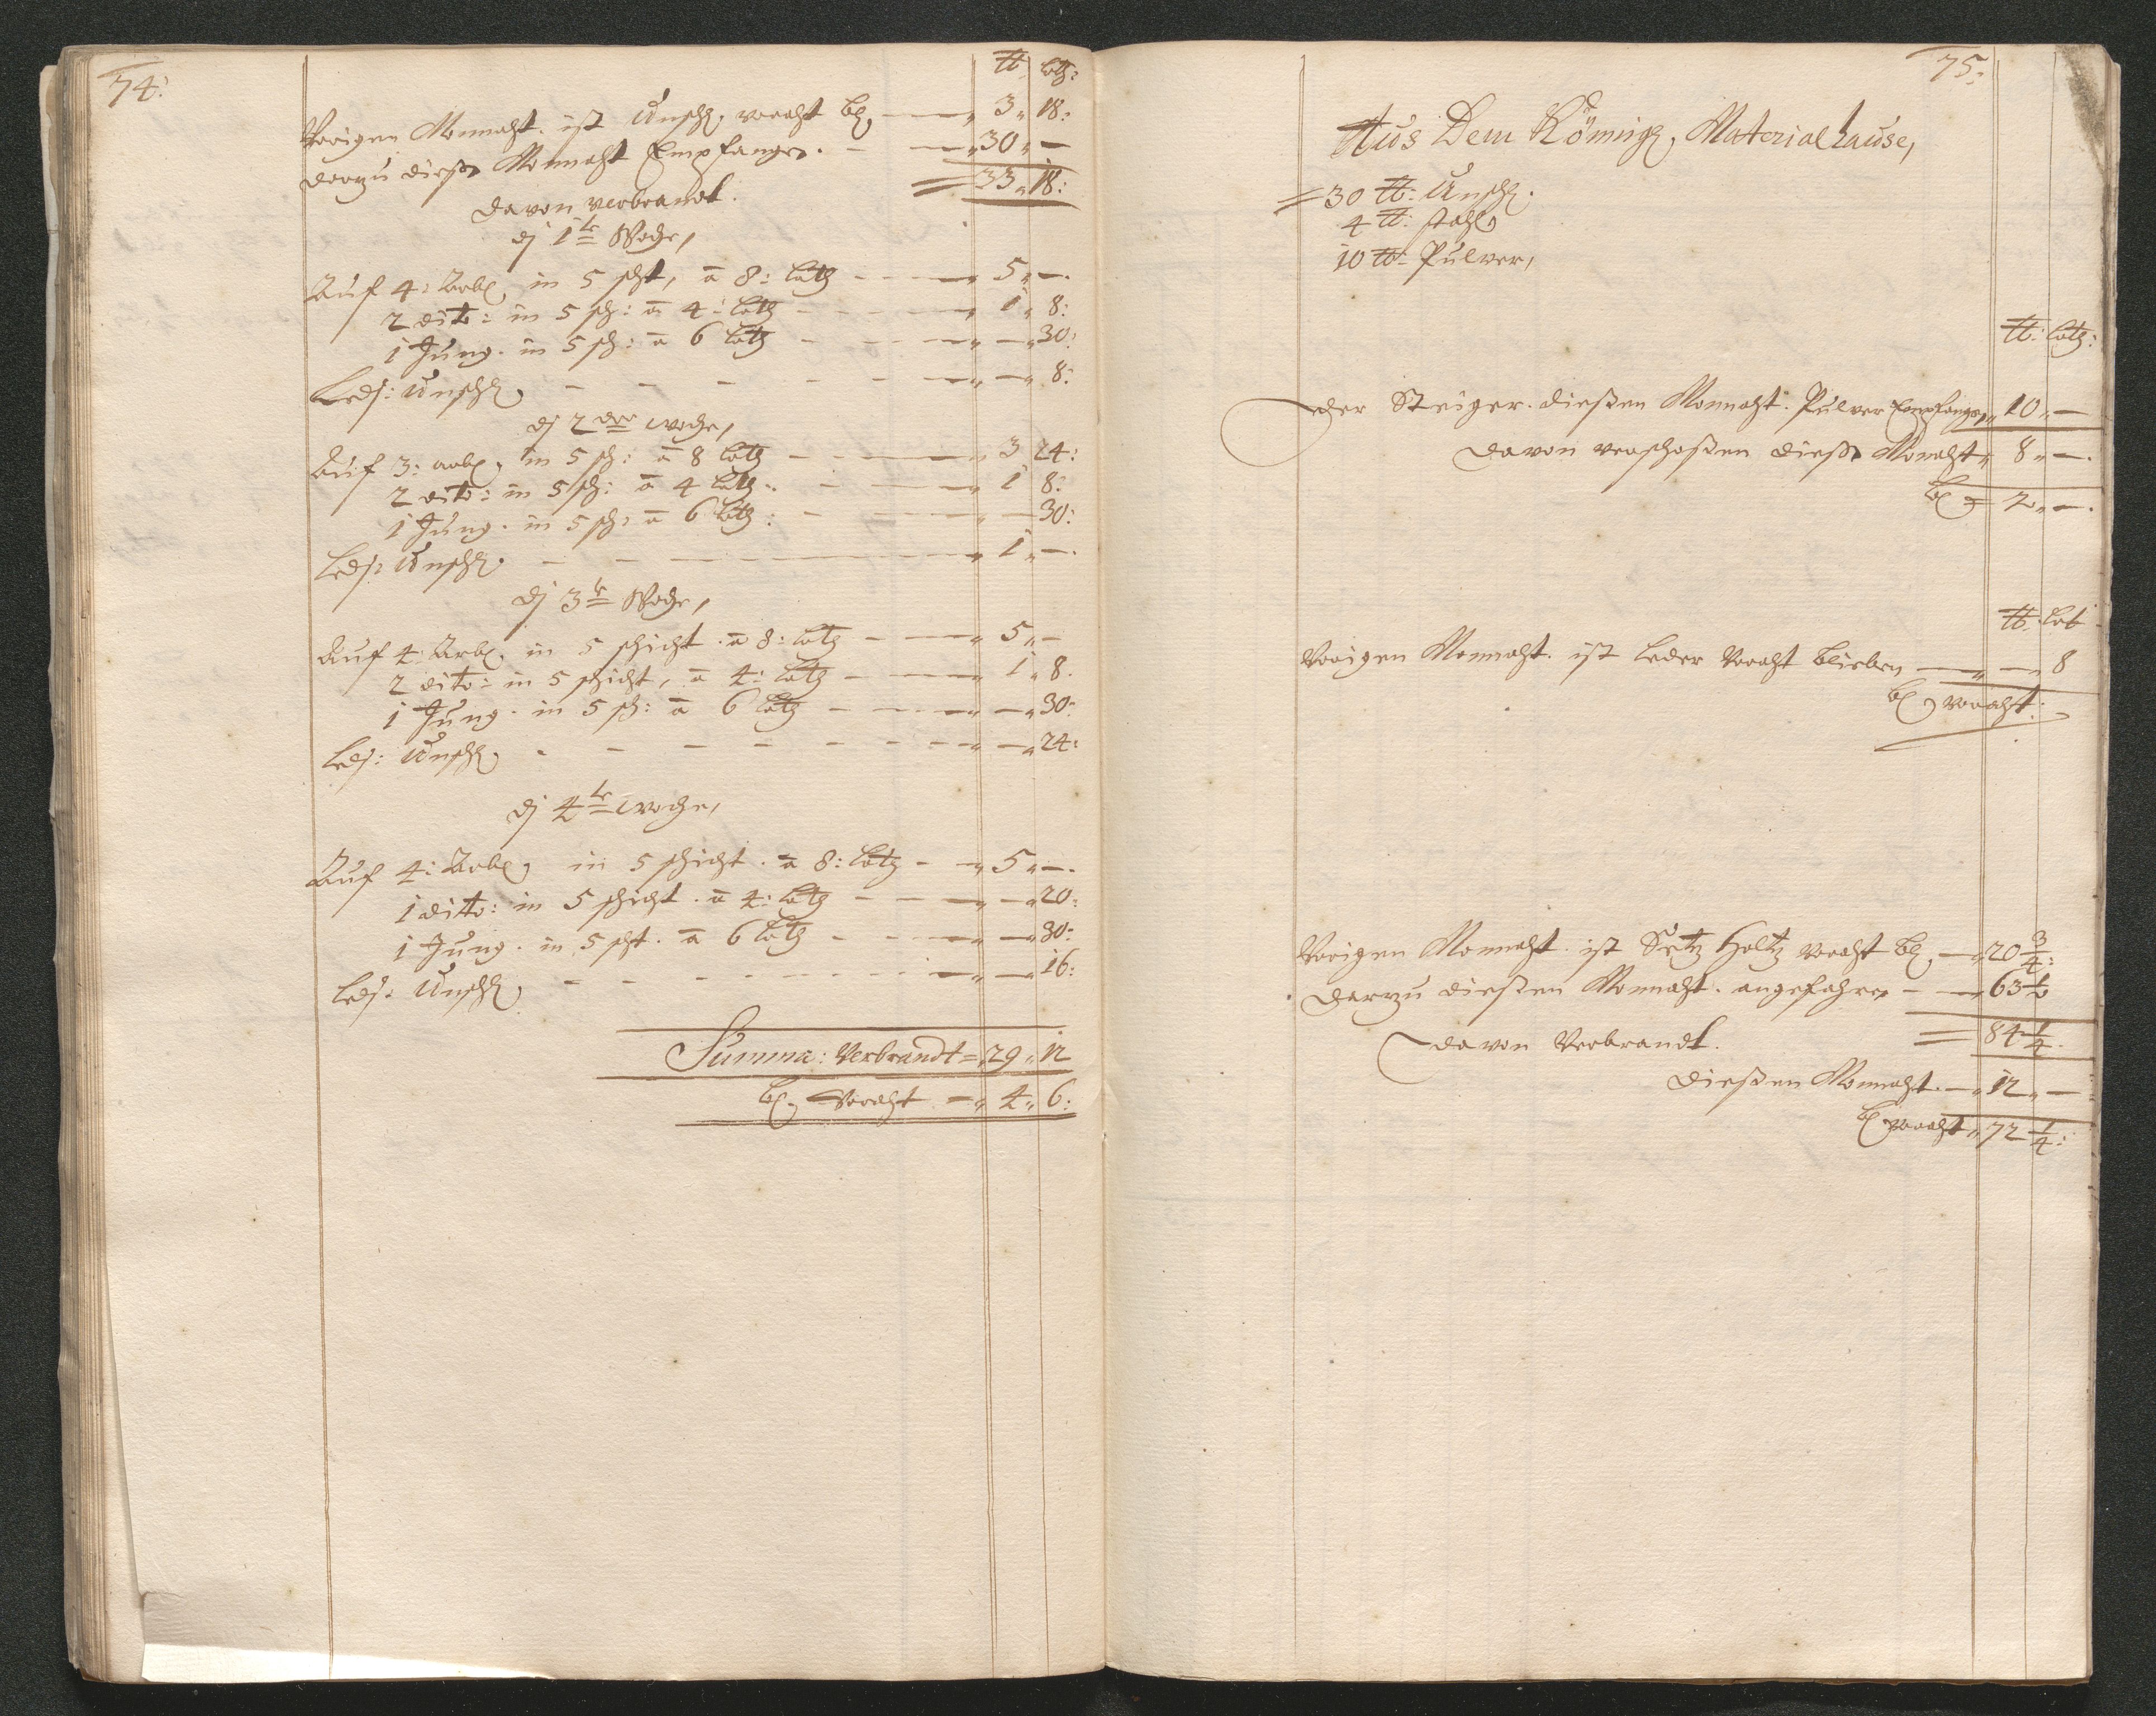 74:
℔ Loth:
Vorigen Monnaht. ist Unschl. voraht bl. — 3 „ 18:
darzu diesen Monnaht Empfangen. — 30 „ —
= 33 „ 18:
davon verbrandt.
dj 1te Woche,
Auf 4: Arb. in 5 scht, a 8: Loth — 5 „ —.
2 dito: in 5 sch: a 4: Loth — 1 „ 8:
1 Jung. in 5 sch: a 6 Loth — „ — „ 30:
Led: Unschl. — „ — „ 8:
dj 2der woche,
Auf 3: arb. in 5 sch: a 8 Loth — „ 3 24:
2 dito: in 5 sch: a 4 Loth. — „ 1 8:
1 Jung. in 5 sch: a 6 Loth: — „ — 30:
Led: Unschl. — „ 1 „ —.
dj 3te Woche,
Auf 4: Arb. in 5 schicht. a 8: Loth — „ 5 „ —
2 dito: in 5 schicht, a 4: Loth — „ 1 „ 8.
1 Jung. in 5 sch: a 6 Loth — „ — „ 30:
Led: Unschl. — „ — „ 24:
dj 4te woche,
Auf 4: Arb. in 5 schicht. a 8: Loth — „ 5 „ —.
1 ditto: in 5 schicht. a 4: Loth — „ — „ 20:
1 Jung. in 5 scht. a 6 Loth — „ — „ 30:
Led: Unschl. — „ — „ 16:
Summa: Verbrandt = „ 29 „ 12
bl. Voraht — „ 4 „ 6:
75:
Aus Dem Königl. Materialhause,
= 30 ℔: Unschl.
4 ℔: stahl
10 ℔: Pulver,
℔: Loth:
der Steiger. diesßen Monnaht. Pulver Empfangen „ 10 „ —
davon verschoßen diesßen Monaht „ 8 „ —.
bl = 2 „ —.
℔. Lot
Vorigen Monnaht. ist Leder Voraht blieben — „ — „ 8
bl voraht:
Vorigen Monnaht. ist Setz Holtz voraht bl. — „ 20 3/4:
darzu diesßen Monnaht. angefahren — „ 63 1/2
= 84 1/4.
davon Verbrandt.
diesßen Monnaht. — „ 12 „ —
bl voraht „ 72 1/4: